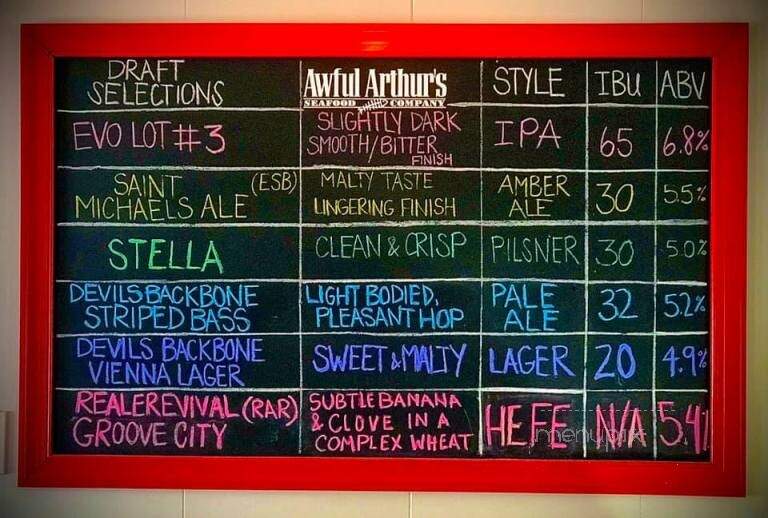 DRAFT SELECTIONS Awful Arthur's SEAFOOD COMPANY STYLE IBU ABV
EVO LOT #3 SLIGHTLY DARK SMOOTH/BITTER FINISH IPA 65 6.8%
SAINT MICHAELS ALE (ESB) MALTY TASTE LINGERING FINISH AMBER ALE 30 5.5%
STELLA CLEAN & CRISP PILSNER 30 5.0%
DEVILS BACKBONE STRIPED BASS LIGHT BODIED, PLEASANT HOP PALE ALE 32 5.2%
DEVILS BACKBONE VIENNA LAGER SWEET & MALTY LAGER 20 4.9%
REALEREVIVAL (RAR) GROOVE CITY SUBTLE BANANA & CLOVE IN A COMPLEX WHEAT HEFE N/A 5.4%
menupix